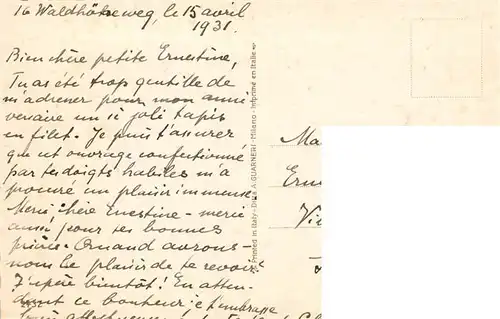 76 Waldhöheweg, le 15 avril
1931.
Bien chère petite Ernestine,
Tu as été trop gentille de
m'adresser pour mon anni-
versaire un si joli tapis
en filet. Je puis t'assurer
que cet ouvrage confectionné
par tes doigts habiles m'a
procuré un plaisir immense.
Merci, chère Ernestine - merci
aussi pour tes bonnes
prières. Quand aurons-
nous le plaisir de te revoir?
J'espère bientôt! En atten-
dant ce bonheur je t'embrasse
bien affectueusement
Printed in Italy - Ditta A. GUARNERI - Milano - Imprimé en Italie
Ma
Ern
Vi